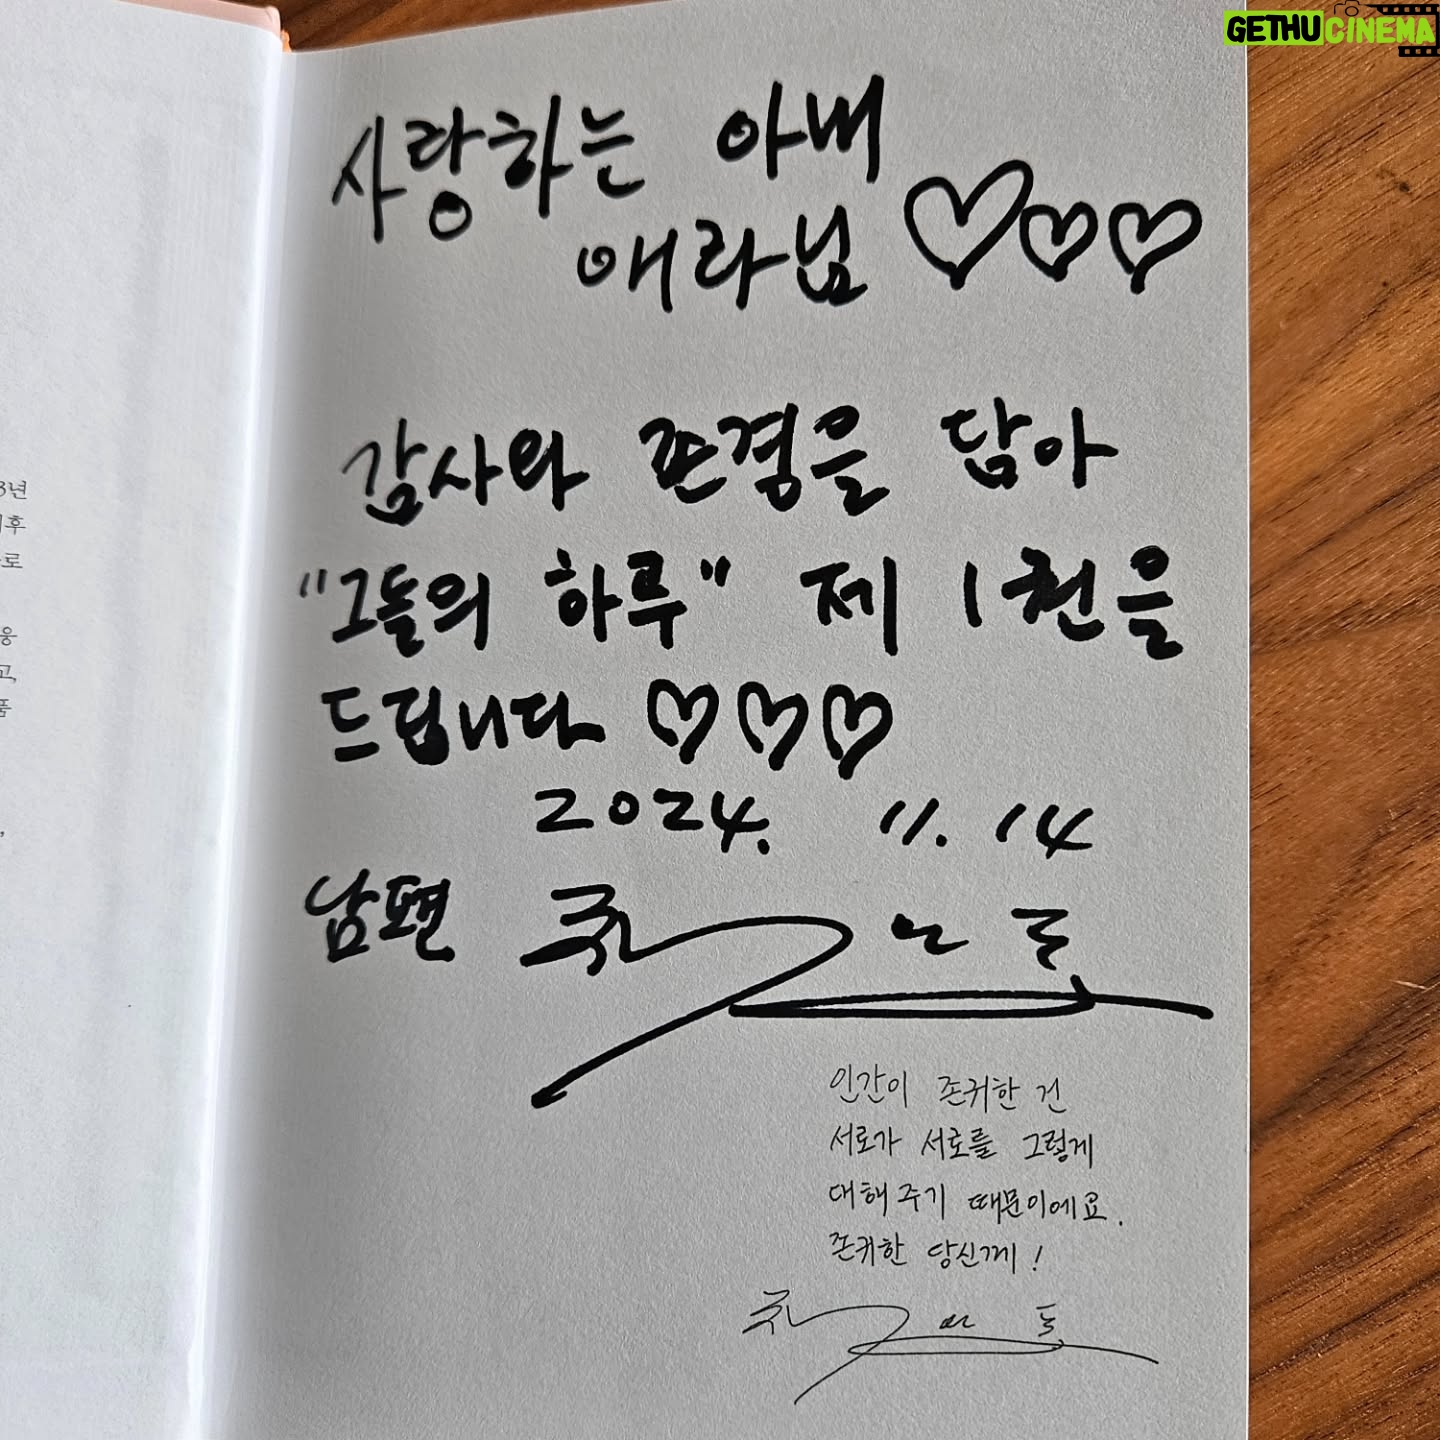 GETHUCINEMA
사랑하는 아내
애라님 ♡♡♡
감사와 존경을 담아
"그들의 하루" 제 1권을
드립니다 ♡♡♡
2024. 11. 14
남편
인간이 존귀한 건
서로가 서로를 그렇게
대해 주기 때문이에요.
존귀한 당신께!
3년
이후
로
웅
고,
품
,